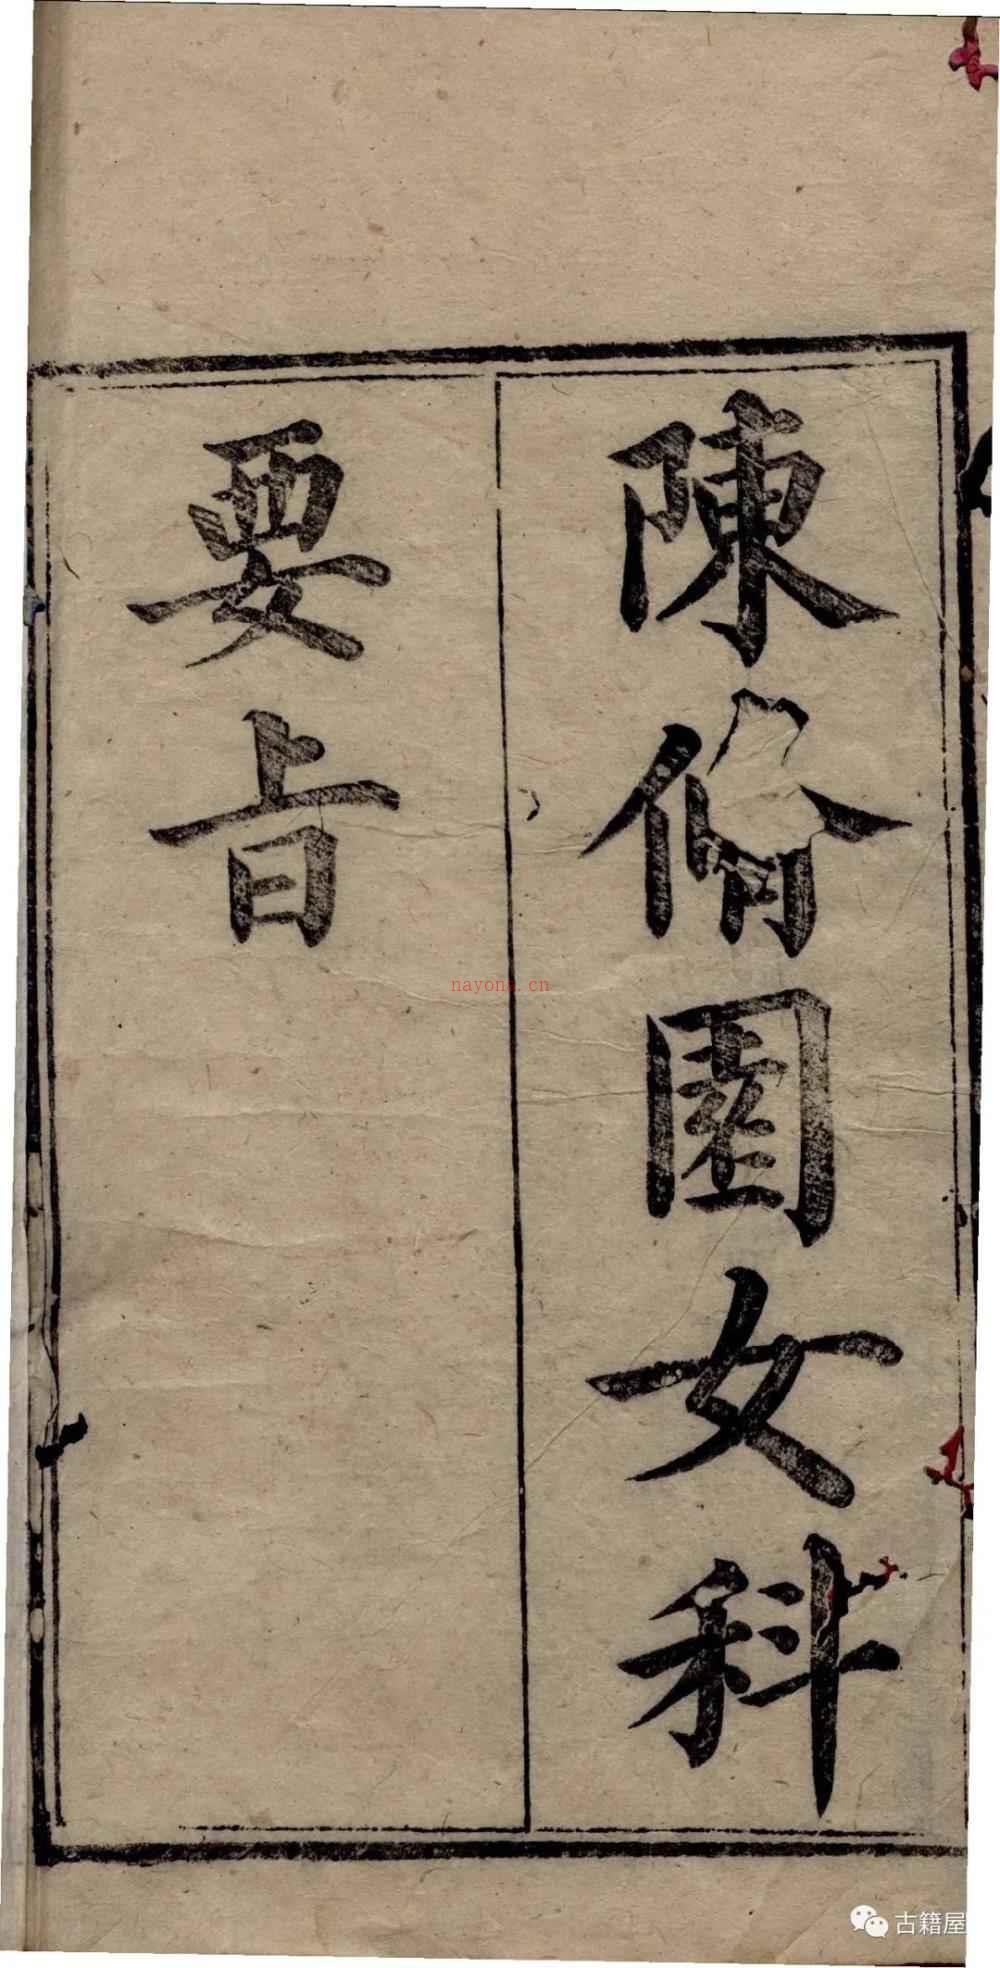 陳脩園女科
要旨
nayona.cn
古籍屋